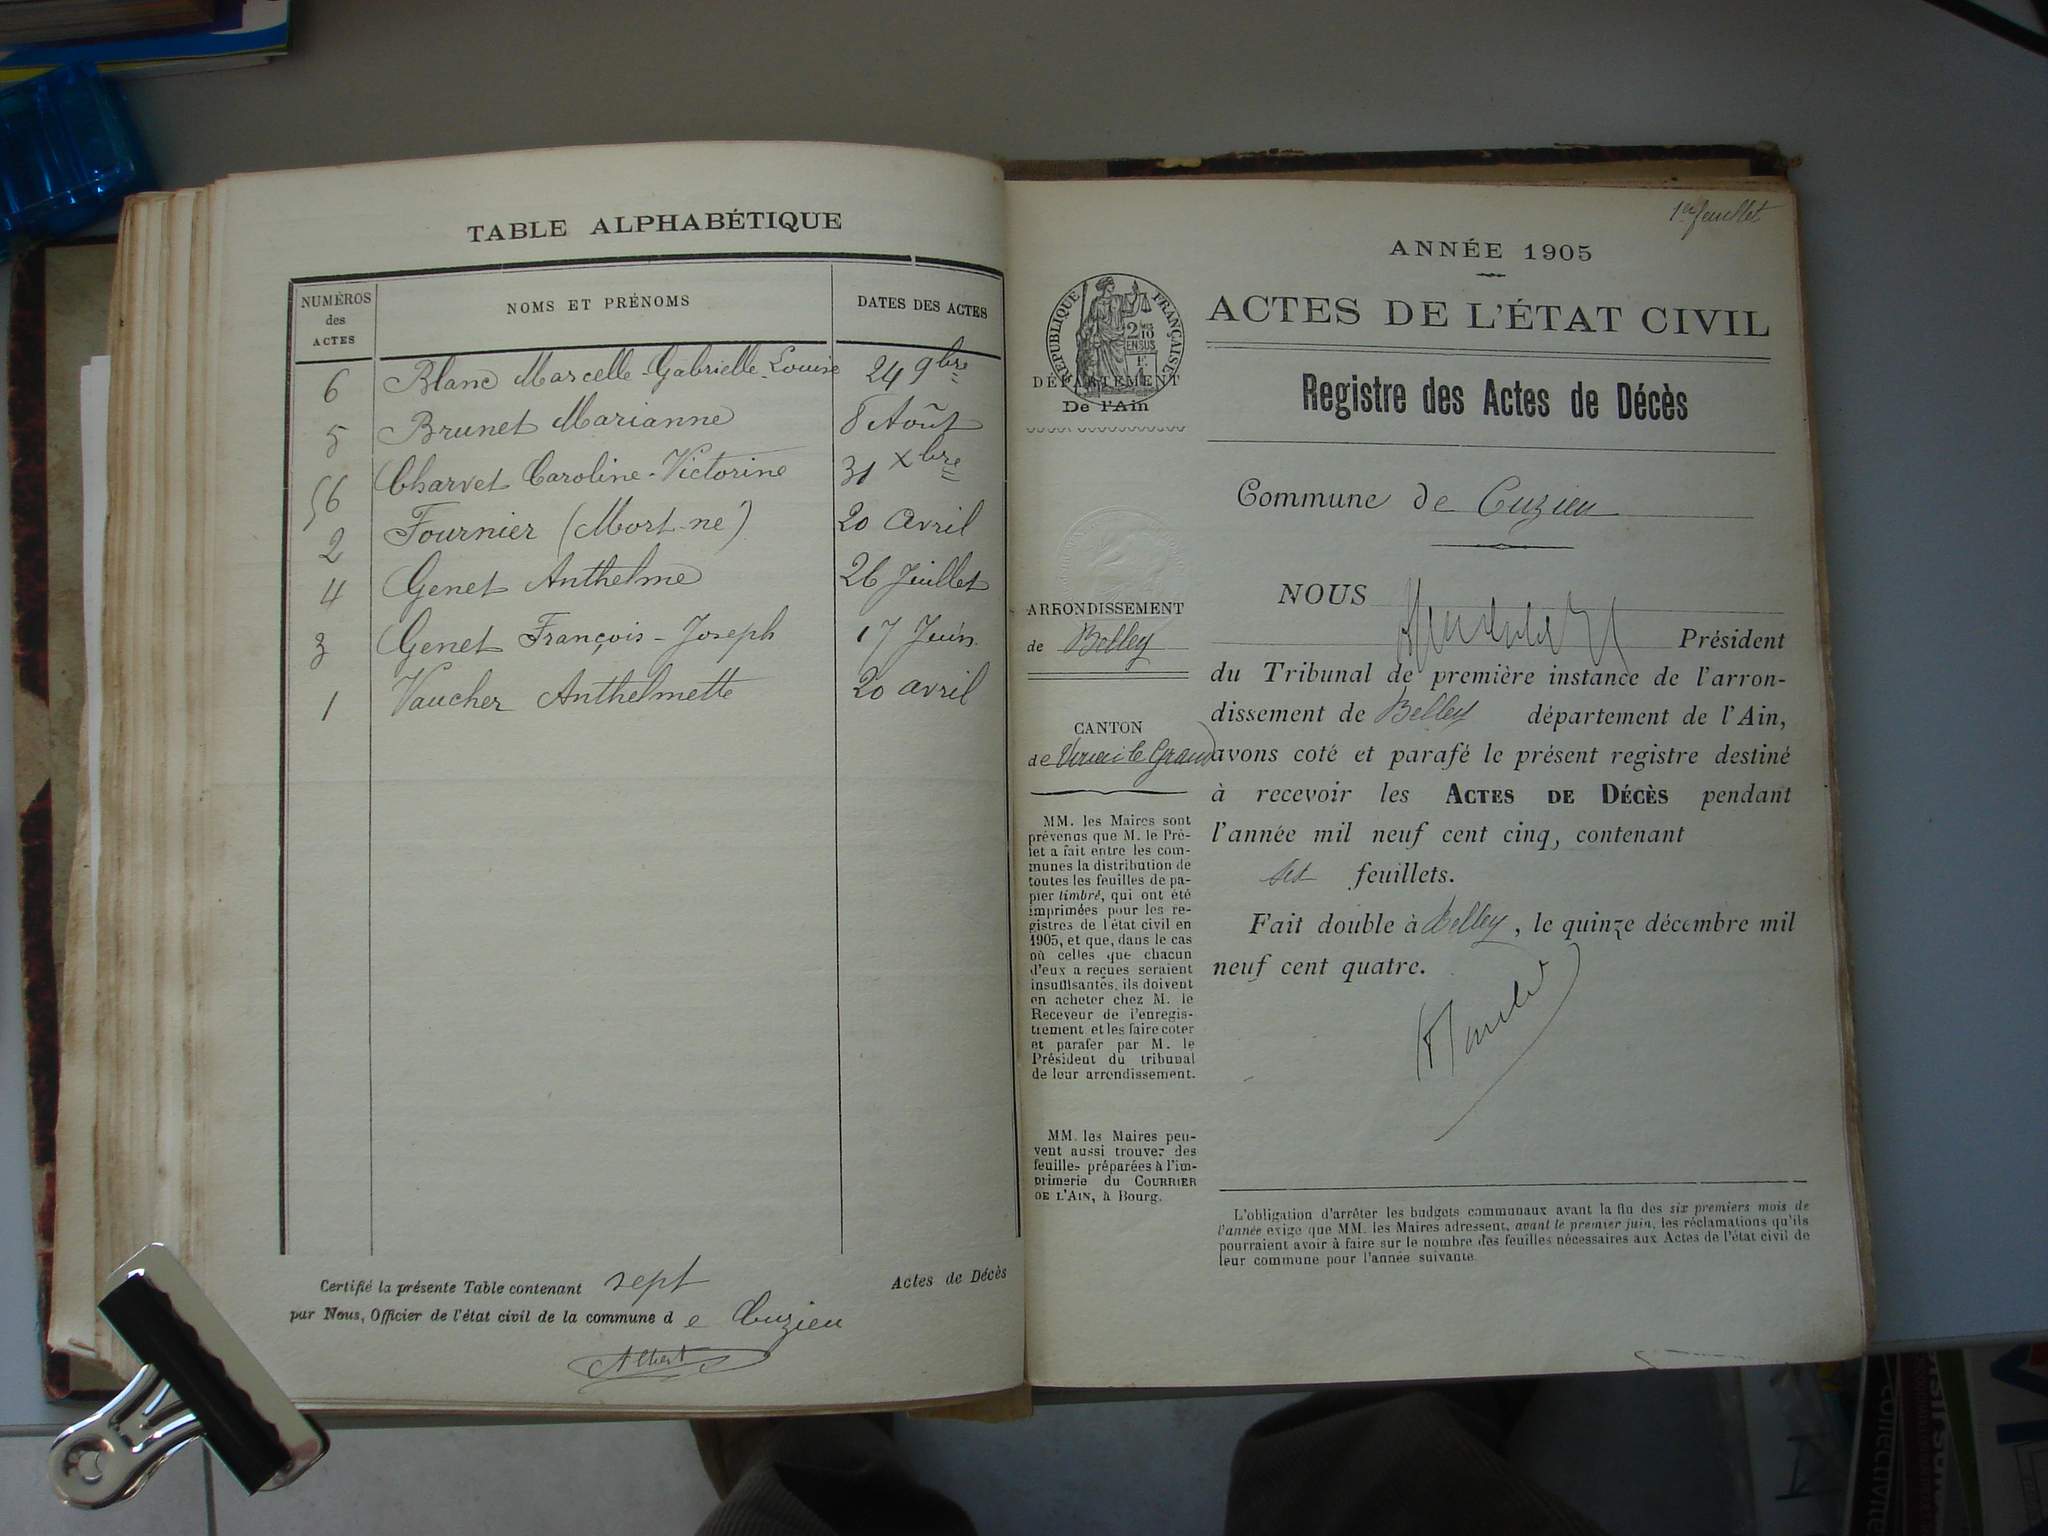 TABLE ALPHABÉTIQUE
NUMÉROS
des
ACTES
NOMS ET PRÉNOMS
DATES DES ACTES
6 Blanc Marcelle-Gabrielle-Louise 24 9bre
5 Brunet Marianne 8 Août
56 Charvet Caroline-Victorine 31 Xbre
2 Fournier (Mort-né) 20 avril
4 Genet Anthelme 26 Juillet
3 Genet François-Joseph 17 Juin
1 Vaucher Anthelmette 20 avril
Certifié la présente Table contenant sept Actes de Décès
par Nous, Officier de l'état civil de la commune de Cuzieu
Albert
1er feuillet
ANNÉE 1905
ACTES DE L'ÉTAT CIVIL
RÉPUBLIQUE FRANÇAISE
2/10
EN SUS
DÉPARTEMENT
De l'Ain
Registre des Actes de Décès
Commune de Cuzieu
ARRONDISSEMENT
de Belley
CANTON
de Virieu le Grand
MM. les Maires sont
prévenus que M. le Pré-
fet a fait entre les com-
munes la distribution de
toutes les feuilles de pa-
pier timbré, qui ont été
imprimées pour les re-
gistres de l'état civil en
1905, et que, dans le cas
où celles que chacun
d'eux a reçues seraient
insuffisantes, ils doivent
en acheter chez M. le
Receveur de l'enregis-
trement et les faire coter
et parafer par M. le
Président du tribunal
de leur arrondissement.
MM. les Maires peu-
vent aussi trouver des
feuilles préparées à l'im-
primerie du COURRIER
DE L'AIN, à Bourg.
NOUS
Président
du Tribunal de première instance de l'arron-
dissement de Belley département de l'Ain,
avons coté et parafé le présent registre destiné
à recevoir les ACTES DE DÉCÈS pendant
l'année mil neuf cent cinq, contenant
feuillets.
Fait double à Belley, le quinze décembre mil
neuf cent quatre.
L'obligation d'arrêter les budgets communaux avant la fin des six premiers mois de
l'année exige que MM. les Maires adressent, avant le premier juin, les réclamations qu'ils
pourraient avoir à faire sur le nombre des feuilles nécessaires aux Actes de l'état civil de
leur commune pour l'année suivante.